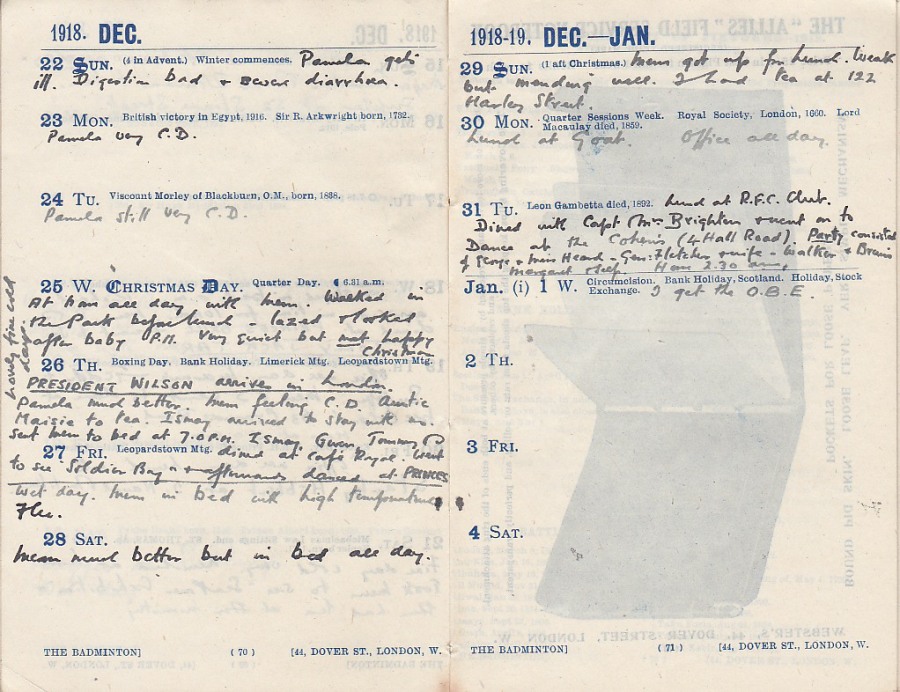 1918. DEC.
22 SUN. (4 in Advent.) Winter commences. Pamela gets
ill. Digestion bad + severe diarrhoea.
23 MON. British victory in Egypt, 1916. Sir R. Arkwright born, 1732.
Pamela very C.D.
24 TU. Viscount Morley of Blackburn, O.M., born, 1838.
Pamela still very C.D.
25 W. CHRISTMAS DAY. Quarter Day. 6.31 a.m.
At home all day with Mem. Walked in
the Park before lunch - lazed + looked
after baby P.M. Very quiet but not happy
Christmas
Lovely fine cold
day.
26 TH. Boxing Day. Bank Holiday. Limerick Mtg. Leopardstown Mtg.
PRESIDENT WILSON arrives in London.
Pamela much better. Mem feeling C.D. Auntie
Maisie to tea. Ismay arrived to stay with us.
Sent Mem to bed at 7.0 P.M. Ismay, Gwen, Tommy
27 FRI. Leopardstown Mtg. dined at Café Royal. Went
to see "Soldier Boy" + afterwards danced at PRINCES
Wet day. Mem in bed with high temperature
Flu.
28 SAT.
Mem much better but in bed all day.
THE BADMINTON] (70) [44, DOVER ST., LONDON, W.
1918-19. DEC.—JAN.
29 SUN. (1 aft Christmas.) Mem got up for lunch. Weak
but mending well. I had tea at 122
Harley Street.
30 MON. Quarter Sessions Week. Royal Society, London, 1660. Lord
Macaulay died, 1859.
Lunch at Goat. Office all day.
31 TU. Leon Gambetta died, 1892. Lunch at R.F.C. Club.
Dined with Capt + Mrs Brighten + went on to
Dance at the Cohen's (4 Hall Road). Party consisted
of George + Miss Heard - Gen: Fletcher + wife - Walker + Brain
Margaret Home 2.30 am.
Jan. (i) 1 W. Circumcision. Bank Holiday, Scotland. Holiday, Stock
Exchange. I get the O.B.E.
2 TH.
3 FRI.
4 SAT.
THE BADMINTON] (71) [44, DOVER ST., LONDON, W.